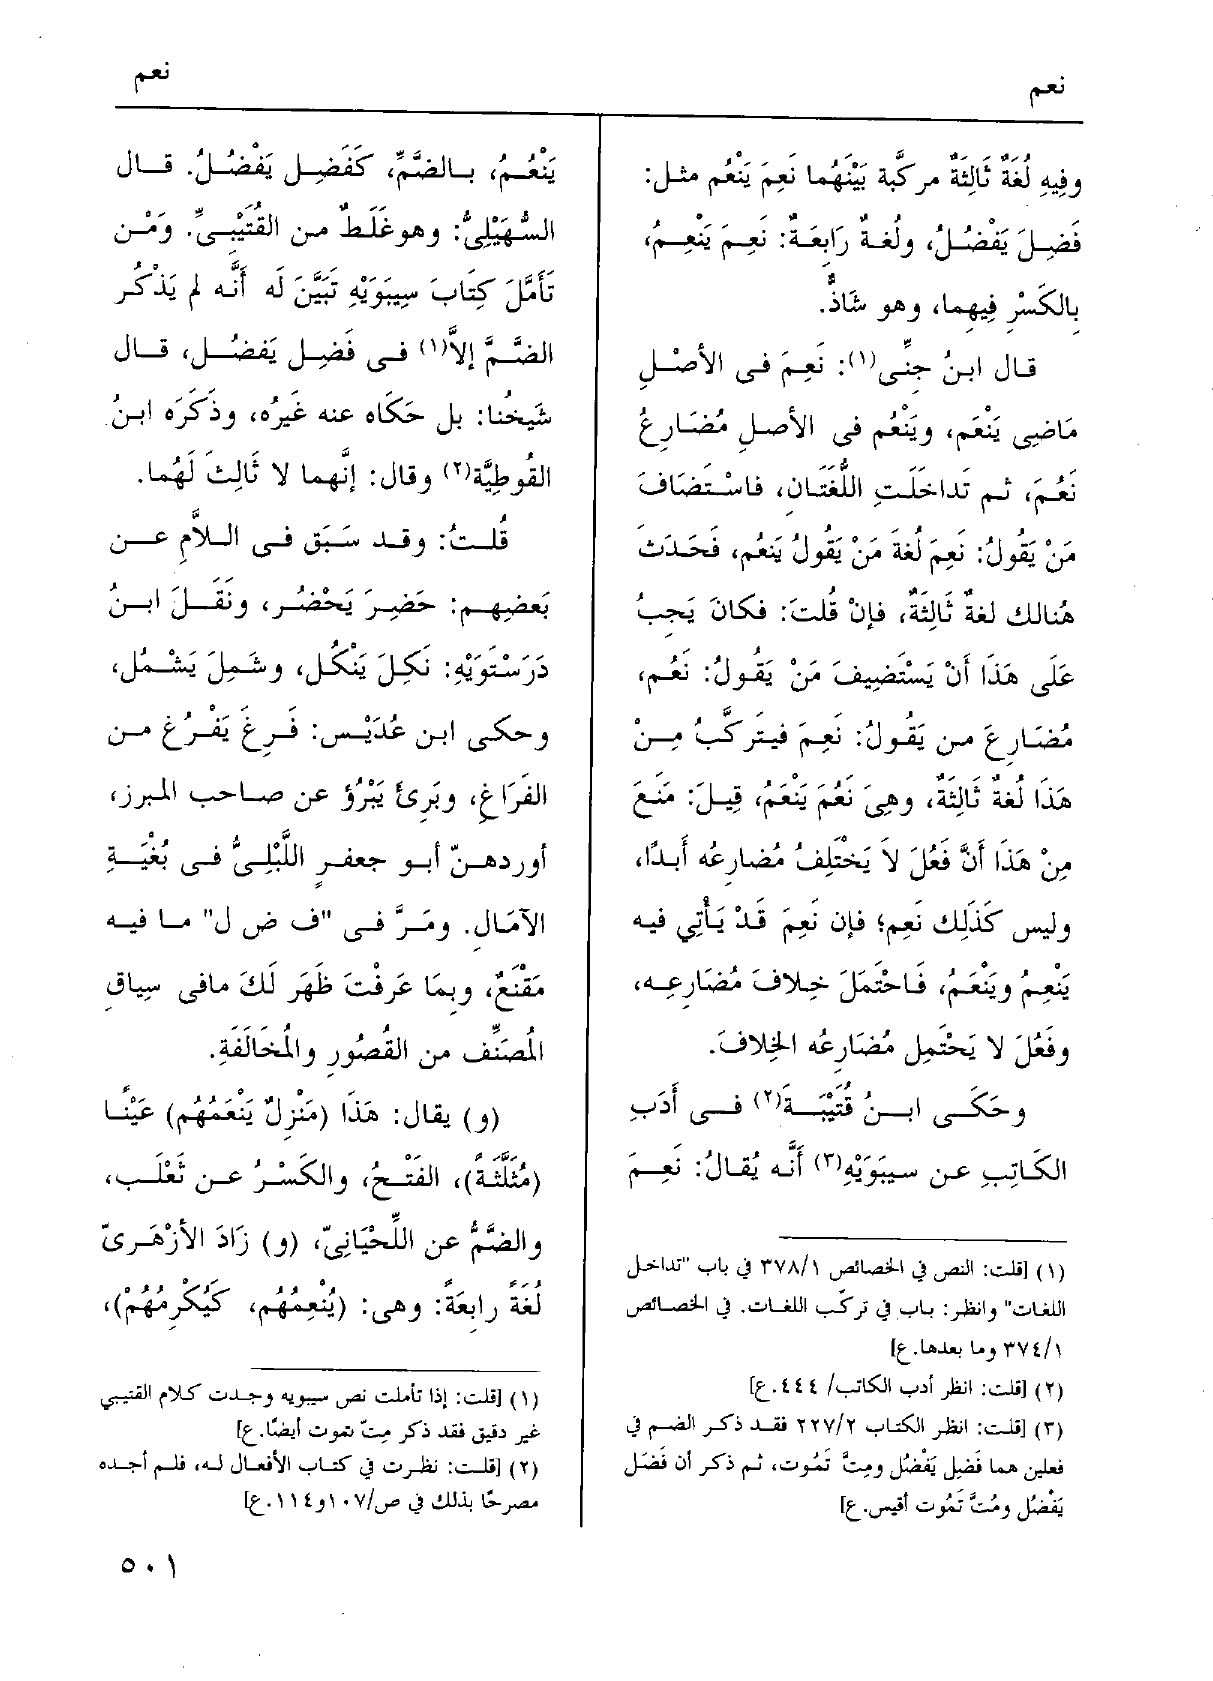 نعم
نعم
وفيه لُغَةٌ ثَالِثَةٌ مركَّبة بَيْنَهُما نَعِمَ يَنْعُم مثل:
فَضِلَ يَفْضُلُ، ولُغةٌ رَابِعَةٌ: نَعِمَ يَنْعِمُ،
بِالكَسْرِ فِيهِما، وهو شَاذٌّ.
قال ابنُ جِنِّى(١): نَعِمَ فى الأَصْلِ
مَاضِى يَنْعَم، ويَنْعُم فى الأصلِ مُضَارِعُ
نَعُمَ، ثم تَداخَلَتِ اللُّغَتَان، فاسْتَضَافَ
مَنْ يَقُولُ: نَعِمَ لُغةَ مَنْ يَقُولُ يَنعُم، فَحَدَثَ
هُنالك لغةٌ ثَالِثَةٌ، فإنْ قُلتَ: فكانَ يَجِبُ
عَلَى هَذَا أَنْ يَسْتَضِيفَ مَنْ يَقُولُ: نَعُم،
مُضَارِعَ من يَقُولُ: نَعِمَ فيتركَّبُ مِنْ
هَذَا لُغةٌ ثَالِثَةٌ، وهِىَ نَعُمَ يَنْعَمُ، قِيلَ: مَنَعَ
مِنْ هَذَا أَنَّ فَعُلَ لاَ يَخْتَلِفُ مُضارِعُه أَبدًا،
وليس كَذَلِك نَعِم؛ فإن نَعِمَ قَدْ يَأْتِي فيه
يَنْعِمُ ويَنْعَمُ، فَاحْتَمَلَ خِلافَ مُضَارِعِه،
وفَعُلَ لا يَحْتَمِل مُضَارِعُه الخِلافَ.
وحَكَى ابنُ قُتَيْبَةَ(٢) فى أَدَبِ
الكَاتِبِ عن سيبَوَيْهِ(٣) أنَّه يُقالُ: نَعِمَ
(١) [قلت: النص في الخصائص ٣٧٨/١ في باب "تداخل
اللغات" وانظر: باب في تركّب اللغات. في الخصائص
٣٧٤/١ وما بعدها.ع]
(٢) [قلت: انظر أدب الكاتب/ ٤٤٤.ع]
(٣) [قلت: انظر الكتاب ٢٢٧/٢ فقد ذكر الضم في
فعلين هما فَضِل يَفْضُل ومِتَّ تَمُوت، ثم ذكر أن فَضَل
يَفْضُل ومُتَّ تَمُوت أقيس.ع]
يَنْعُمُ، بالضَّمِّ، كَفَضِل يَفْضُلُ. قال
السُّهَيْلِىُّ: وهو غَلَطٌ من القُتَيْبِىِّ. ومَْن
تَأَمَّلَ كِتَابَ سِيبَوَيْهِ تَبَيَّنَ لَه أَنَّه لم يَذْكُر
الضَّمَّ إلاَّ(١) فى فَضِل يَفضُل، قال
شَيخُنا: بل حَكَاه عنه غَيرُه، وذَكَرَه ابنُ
القُوطِيَّة(٢) وقال: إنَّهما لا ثَالِثَ لَهُما.
قُلتُ: وقد سَبَق فى اللاَّم عن
بَعضِهم: حَضِرَ يَحْضُر، ونَقَلَ ابنُ
دَرَسْتَوَيْهِ: نَكِلَ يَنْكُل، وشَمِلَ يَشْمُل،
وحكى ابن عُدَيْس: فَرِغَ يَفْرُغ من
الفَرَاغِ، وبَرِئَ يَبْرُؤ عن صاحب المبرز،
أوردهنّ أبو جعفرٍ اللَّبْلِىُّ فى بُغْيَةِ
الآمَالِ. ومَرَّ فى "ف ض ل" ما فيه
مَقْنَعٌ، وبِمَا عَرفْتَ ظَهَر لَكَ مافى سِياقِ
المُصَنِّف من القُصُورِ والمُخَالَفَةِ.
(و) يقال: هَذَا (مَنْزِلٌ يَنْعَمُهُم) عَيْنًا
(مُثَلَّثَةً)، الفَتْحُ، والكَسْرُ عن ثَعْلَب،
والضَّمُّ عن اللِّحْيَانِىّ، (و) زَادَ الأَزْهَرِىّ
لُغَةً رابِعَةً: وهى: (يُنْعِمُهُم، كَيُكْرِمُهُمْ)،
(١) [قلت: إذا تأملت نص سيبويه وجدت كلام القتيبي
غير دقيق فقد ذكر مِتّ تموت أيضًا.ع]
(٢) [قلت: نظرت في كتاب الأفعال له، فلم أجده
مصرحًا بذلك في ص/١٠٧و١١٤.ع]
٥٠١